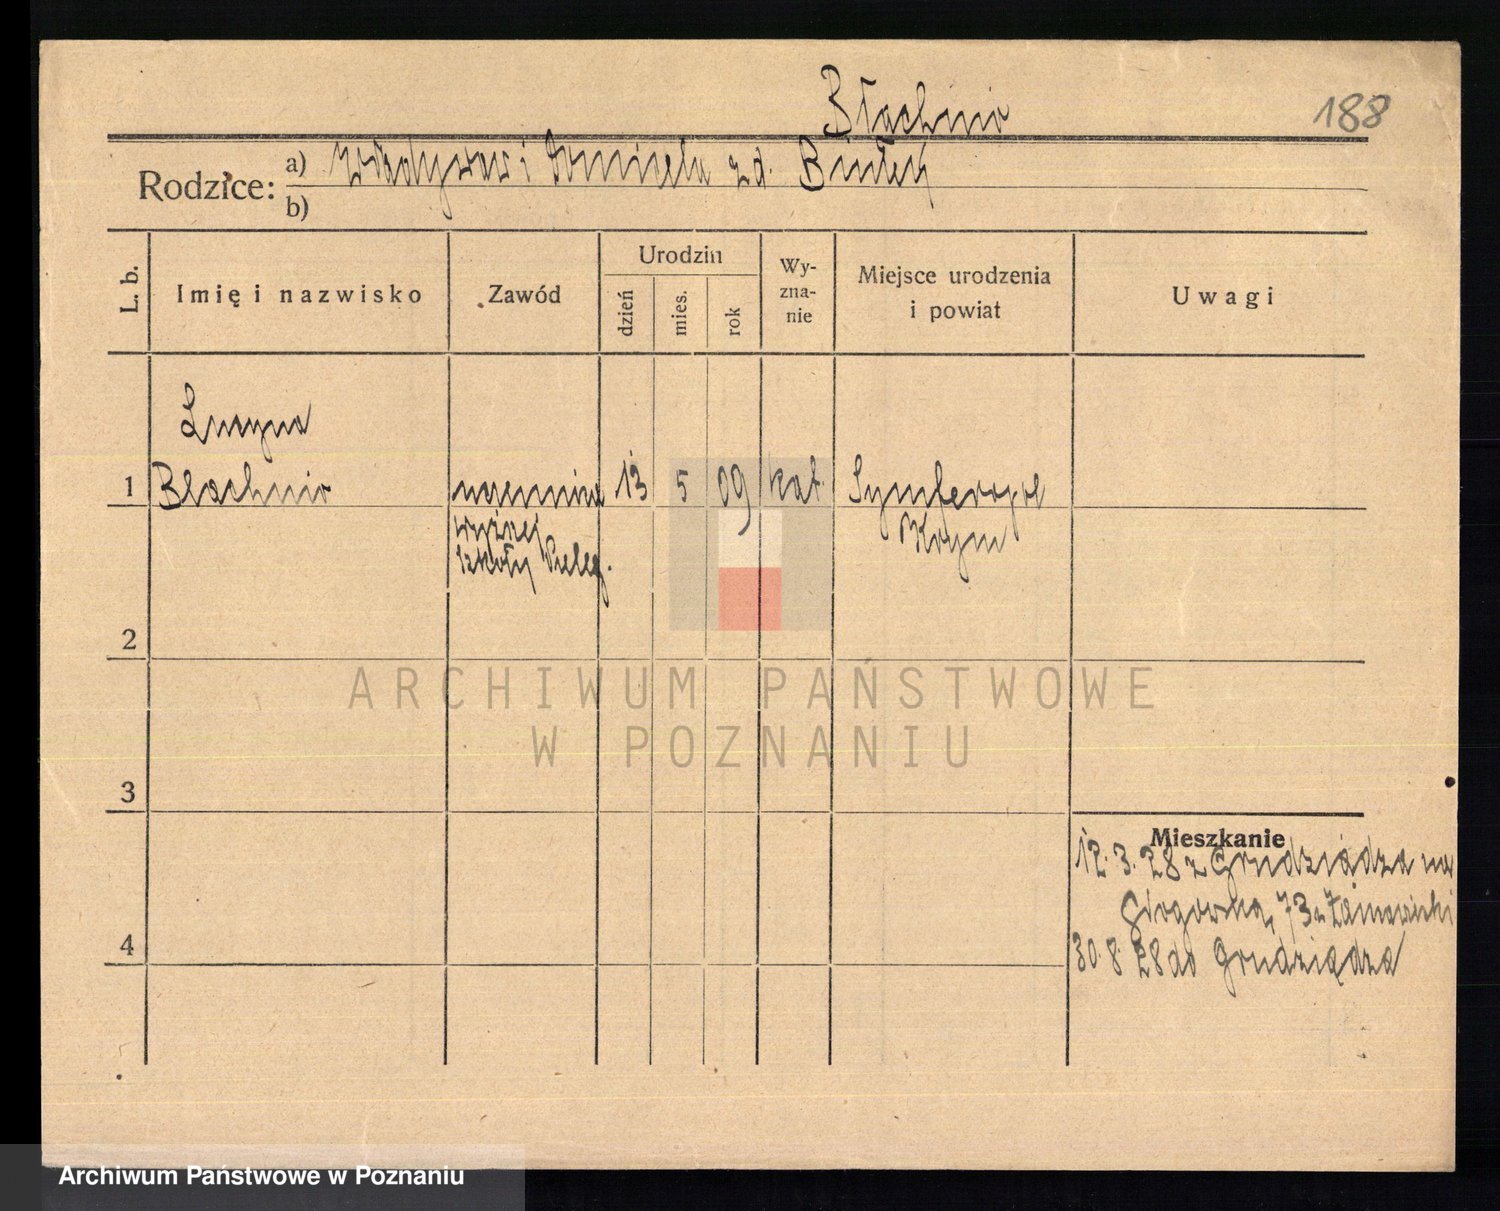 Błachnio
188
Rodzice: a) Władysław i Domicela zd. Białek
b)
L. b.
Imię i nazwisko
Zawód
Urodzin
dzień
mies.
rok
Wy-
zna-
nie
Miejsce urodzenia
i powiat
Uwagi
Lucyna
1 Błachnio uczennica 13 5 09 kat. Symferopol
wyższej Krym
szkoły Pieleg.
2
ARCHIWUM PAŃSTWOWE
W POZNANIU
3
Mieszkanie
12. 3. 28 z Grudziądza na
Głogowską 73
4
30. 8. 28 do Grudziądza
Archiwum Państwowe w Poznaniu